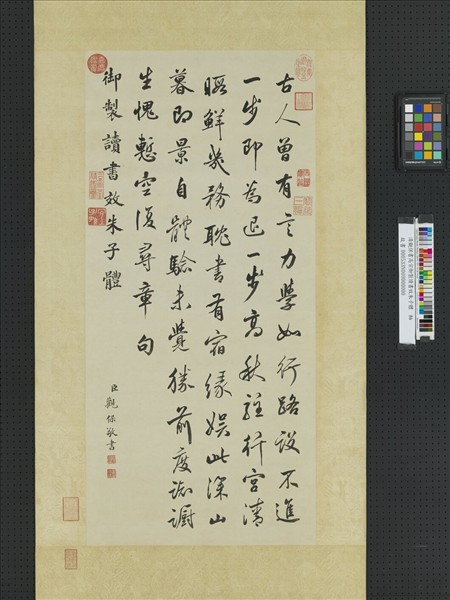 古人曾有言力學如行路設不進
一步即為退一步高秋駐行宮清
暇鮮幾務耽書有宿緣娛此深山
暮即景自體驗未覺勝前度踟躕
生愧慙空復尋章句
御製讀書效朱子體
臣觀保敬書